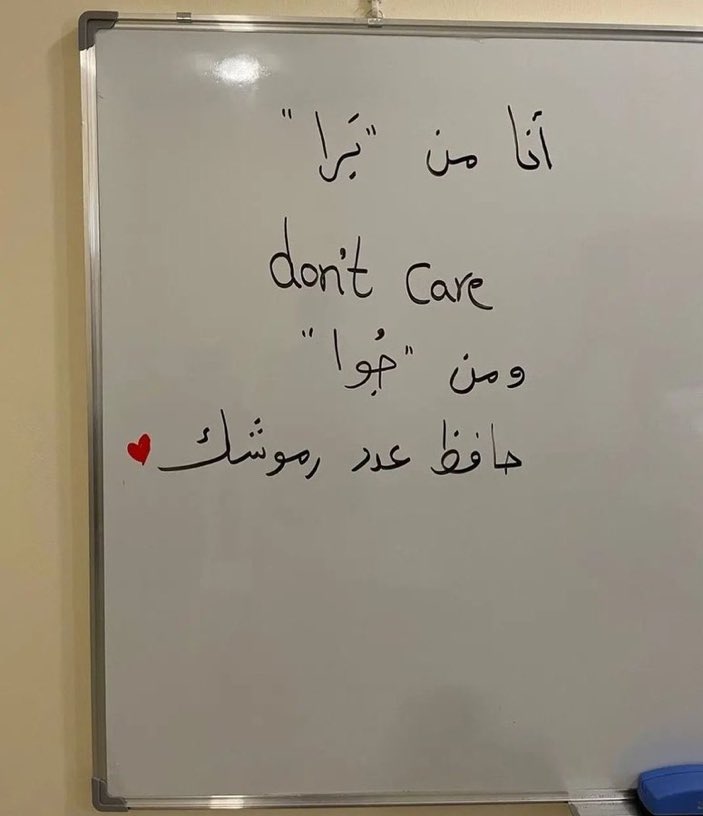 أنا من "بَرا"
don't care
ومن "جُوا"
حافظ عدد رموشك ♥